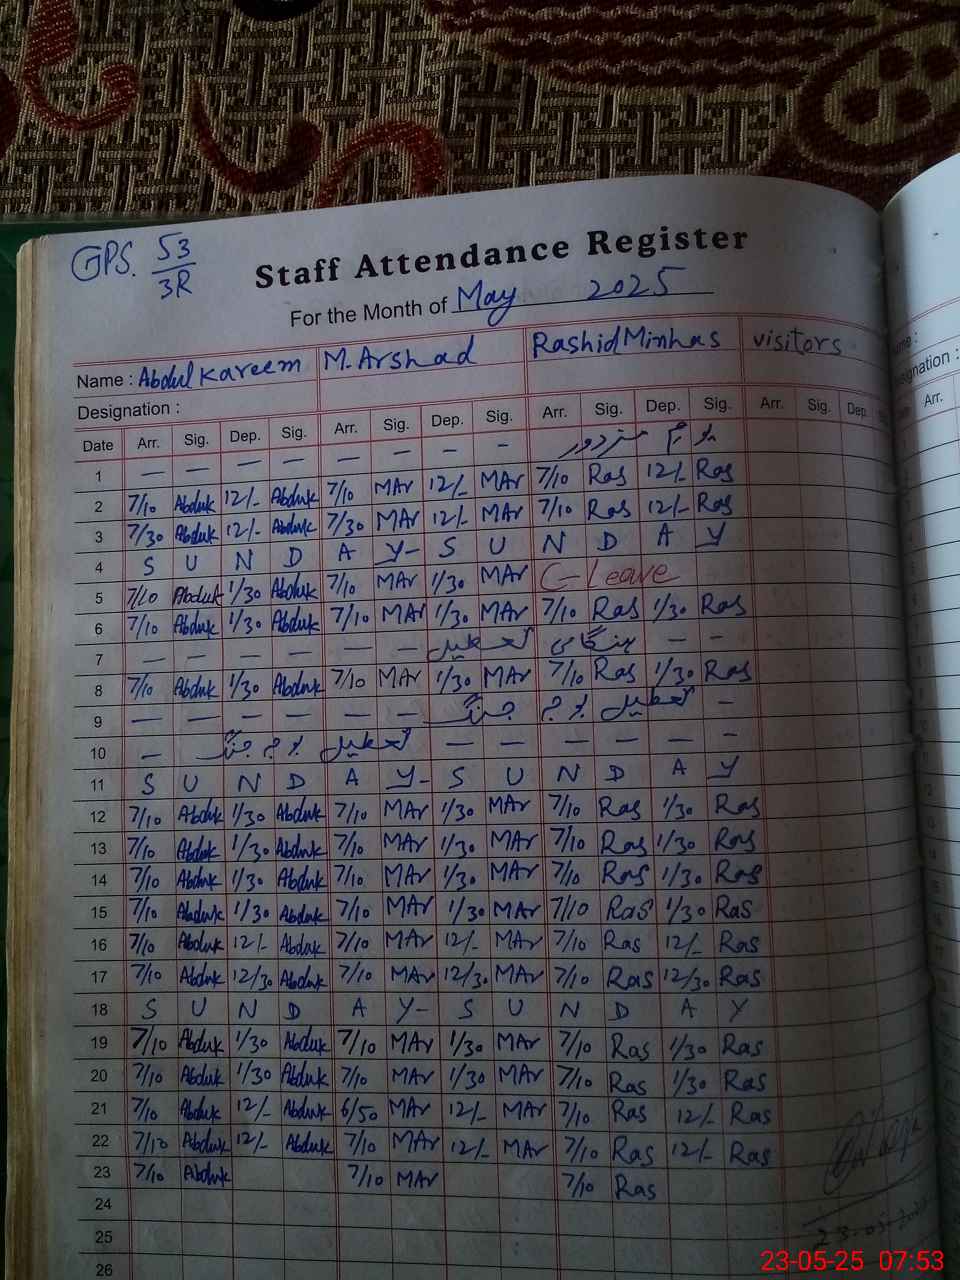 GPS. 53/3R
Staff Attendance Register
For the Month of May 2025
Name : Abdul Kareem M. Arshad Rashid Minhas visitors
Designation :
Date Arr. Sig. Dep. Sig. Arr. Sig. Dep. Sig. Arr. Sig. Dep. Sig. Arr. Sig. Dep.
1 — — — — — — — - یوم مزدور
2 7/10 Abduk 12/- Abduk 7/10 MAr 12/- MAr 7/10 Ras 12/- Ras
3 7/30 Abduk 12/- Abduk 7/30 MAr 12/- MAr 7/10 Ras 12/- Ras
4 S U N D A Y- S U N D A Y
5 7/10 Abduk 1/30 Abduk 7/10 MAr 1/30 MAr C-Leave
6 7/10 Abduk 1/30 Abduk 7/10 MAr 1/30 MAr 7/10 Ras 1/30 Ras
7 — — — — — — تعطیل ہنگامی — -
8 7/10 Abduk 1/30 Abduk 7/10 MAr 1/30 MAr 7/10 Ras 1/30 Ras
9 — — — — — — جنگ تعطیل —
10 — جنگ تعطیل — — — — — -
11 S U N D A Y- S U N D A Y
12 7/10 Abduk 1/30 Abduk 7/10 MAr 1/30 MAr 7/10 Ras 1/30 Ras
13 7/10 Abduk 1/30 Abduk 7/10 MAr 1/30 MAr 7/10 Ras 1/30 Ras
14 7/10 Abduk 1/30 Abduk 7/10 MAr 1/30 MAr 7/10 Ras 1/30 Ras
15 7/10 Abduk 1/30 Abduk 7/10 MAr 1/30 MAr 7/10 Ras 1/30 Ras
16 7/10 Abduk 12/- Abduk 7/10 MAr 12/- MAr 7/10 Ras 12/- Ras
17 7/10 Abduk 12/30 Abduk 7/10 MAr 12/30 MAr 7/10 Ras 12/30 Ras
18 S U N D A Y- S U N D A Y
19 7/10 Abduk 1/30 Abduk 7/10 MAr 1/30 MAr 7/10 Ras 1/30 Ras
20 7/10 Abduk 1/30 Abduk 7/10 MAr 1/30 MAr 7/10 Ras 1/30 Ras
21 7/10 Abduk 12/- Abduk 6/50 MAr 12/- MAr 7/10 Ras 12/- Ras
22 7/10 Abduk 12/- Abduk 7/10 MAr 12/- MAr 7/10 Ras 12/- Ras
23 7/10 Abduk 7/10 MAr 7/10 Ras
24
25
26
23-05-25 07:53